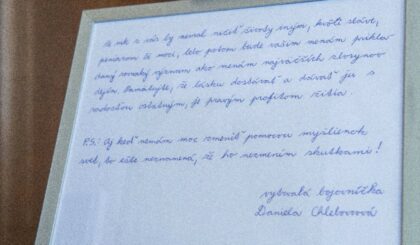 že nik z vás by nemal ničiť životy iným, kvôli sláve,
peniazom či moci, lebo potom bude vašim menám prikla-
daný rovnaký význam ako menám najväčších zlosynov
dejín. Pamätajte, že lásku dostávať a dávať jej s
radosťou ostatným, je pravým profitom žitia.
P.S.: Aj keď nemám moc zmeniť pomocou myšlienok
svet, to ešte neznamená, že ho nezmením skutkami!
vytrvalá bojovníčka
Daniela Chlebovcová